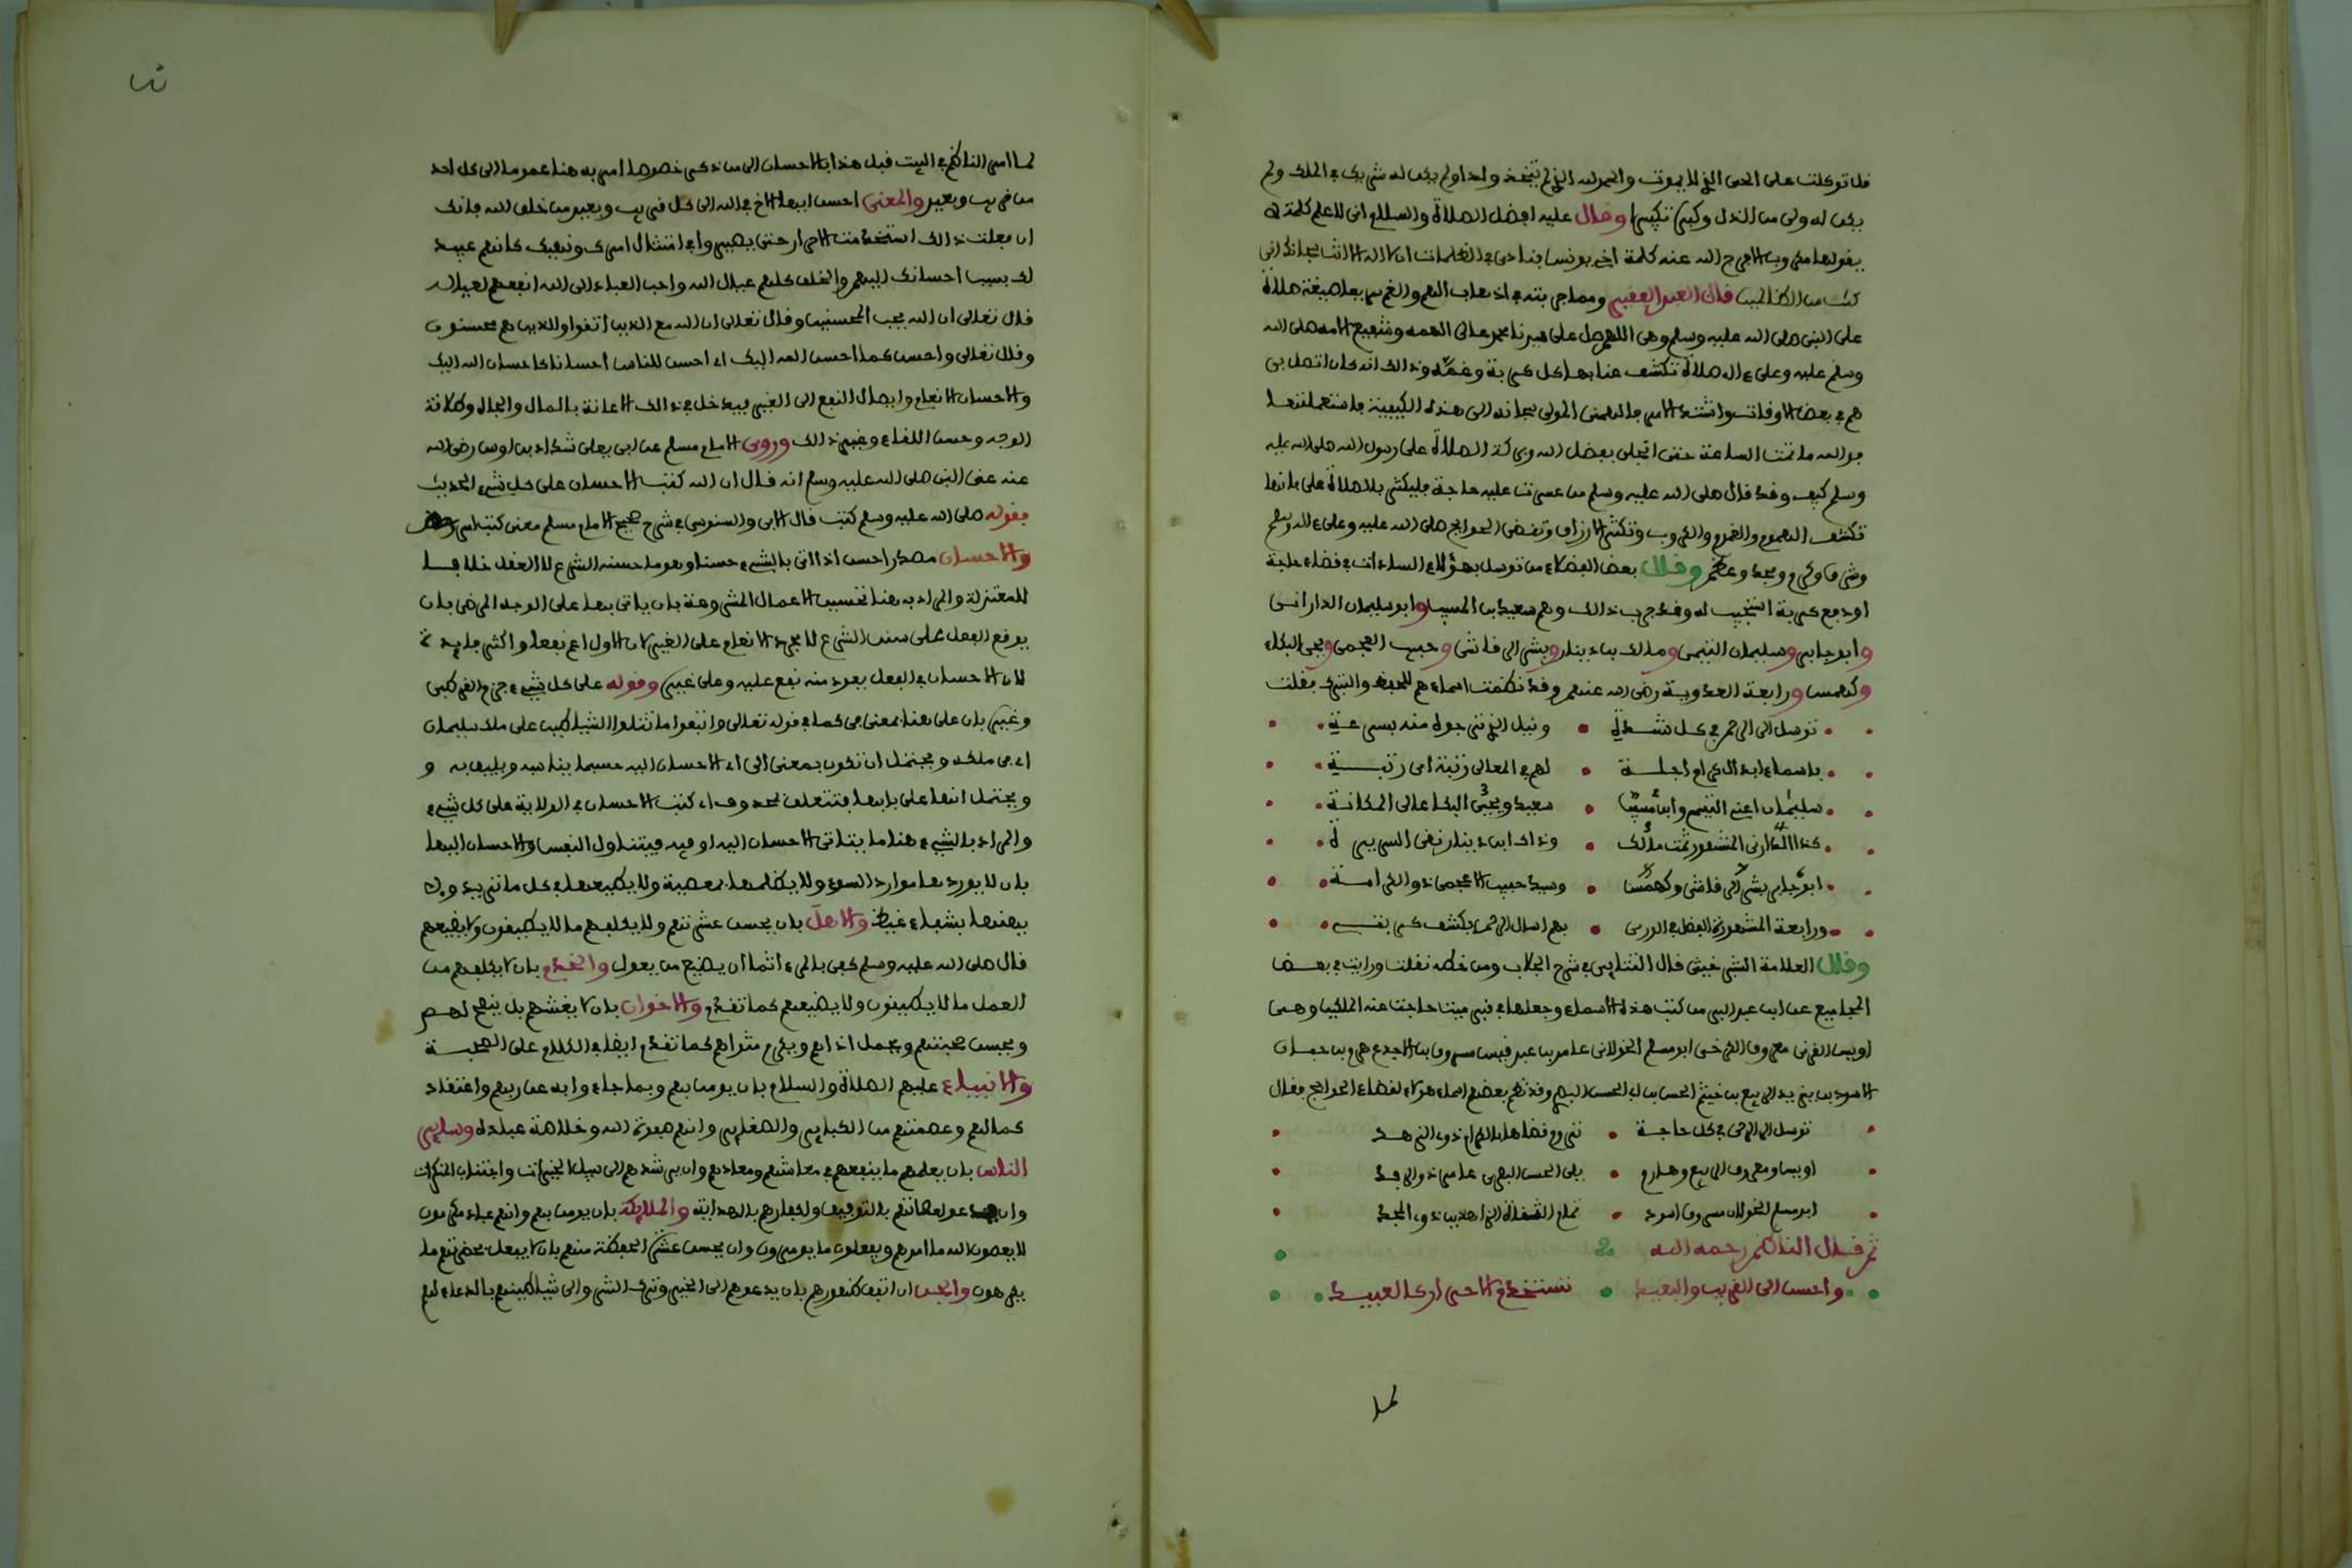 قل توكلت على الحي الذي لا يموت والحمد لله الذي لم يتخذ ولدا ولم يكن له شريك في الملك ولم
يكن له ولي من الذل وكبره تكبيرا وقال عليه افضل الصلاة والسلام اني لاعلم كلمة لا
يقولها مكروب الا فرج الله عنه كلمة اخي يونس فنادى في الظلمات ان لا اله الا انت سبحانك اني
كنت من الظالمين قال العبد الفقير ومما جربته في اذهاب الهم والغم بها صيغة صلاة
على النبي صلى الله عليه وسلم وهي اللهم صل على سيدنا محمد عالي الهمه وشفيع الامه صلى الله
وسلم عليه وعلى ءاله صلاة تكشف عنا بها كل كربة وغمه وذالك انه كان اتصل بي
هم في بعض الاوقات واشتد الامر فالهمني المولى سبحانه الى هذه الكيفية فاستعملتها
فوالله ما تمت الساعة حتى انجلى بفضل الله وبركة الصلاة على رسول الله صلى الله عليه
وسلم كيف وقد قال صلى الله عليه وسلم من عسرت عليه حاجة فليكثر بالصلاة علي فانها
تكشف الهموم والغموم والكروب وتكثر الارزاق وتقضي الحوايج صلى الله عليه وعلى ءاله وسلم
وشرف وكرم ومجد وعظم وقال بعض الفضلاء من توسل بهؤلاء السادات في قضاء حاجة
او دفع كربة استجيب له وقد جرب ذالك وهم سعيد بن المسيب وابو سليمان الداراني
وابو جابر وسليمان التيمي ومالك بن دينار وبشر الرقاشي وحبيب العجمي ويحي البكاء
وكهمس ورابعة العدوية رضي الله عنهم وقد نظمت اسماءهم للحفظ والتبرك فقلت
توسل الى الرحمن في كل شدة • ونيل الذي ترجوه منه بسرعة
باسماء ابدال كرام اجلة • لهم في المعالي رتبة اي رتبة
سليمان اعني التيم وابن مسيب • سعيد ويحيى البكا عالي المكانة
كذا الداراني المشهور ثمت مالك • وذاك ابن دينار نقي السريرة
ابو جابر بشر الرقاشي وكهمس • وسيد حبيب الاعجمي ذو الكرامة
ورابعة المشهورة الفضل في الورى • بهم اسال الرحمن يكشف كربتي
وقال العلامة الشبرخيتي قال التتايي في شرح الجلاب ومن خطه نقلت ورايت في بعض
المجاميع عن ابن عبد البر من كتب هذه الاسماء وجعلها في قبر ميت حاجت عنه الملكين وهي
اويس القرني معروف الكرخي ابو مسلم الخولاني عامر بن عبد قيس مسروق بن الاجدع هرم بن حيان
الاسود بن يزيد الربيع بن خيثم الحسن بن ابي الحسن البصري وقد نظم بعضهم اسماء هؤلاء لقضاء الحوايج فقال
توسل الى الرحمن في كل حاجة • تروم قضاها بالكرام ذوي الزهد
اويس ومعروف الربيع وهارم • يلي الحسن البصري عامر ذو الرفد
ابو مسلم الخولان مسروق اسود • تمام الثقاة الزاهدين ذوي المجد
ثم قال الناظم رحمه الله
واحسن الى القريب والبعيد • تستخدم الاحرار كالعبيد
لما
لما امر الناظم في البيت قبل هذا بالاحسان الى من ذكر خصوصا امر به هنا عموما الى كل احد
من قريب وبعيد والمعنى احسن ايها الاخ في الله الى كل قريب وبعيد من خلق الله فانك
ان فعلت ذالك استخدمت الاحرار حتى يصيروا في امتثال امرك ونهيك كانهم عبيد
لك بسبب احسانك اليهم والخلق كلهم عيال الله واحب العباد الى الله انفعهم لعياله
قال تعالى ان الله يحب المحسنين وقال تعالى ان الله مع الذين اتقوا والذين هم محسنون
وقال تعالى واحسن كما احسن الله اليك اي احسن للناس احسانا كاحسان الله اليك
والاحسان الانعام وايصال النفع الى الغير فيدخل في ذالك الاعانة بالمال والجاه وطلاقة
الوجه وحسن اللقاء وغير ذالك وروى الامام مسلم عن ابي يعلى شداد بن اوس رضي الله
عنه عن النبي صلى الله عليه وسلم انه قال ان الله كتب الاحسان على كل شيء الحديث
فقوله صلى الله عليه وسلم كتب قال الابي والسنوسي في شرح صحيح الامام مسلم معنى كتب امر
والاحسان مصدر احسن اذا اتى بالشيء حسنا وهو ما حسنه الشرع لا العقل خلافا
للمعتزلة والمراد به هنا تحسين الاعمال المشروعة بان ياتي بها على الوجه المرضي بان
يوقع الفعل على سنن الشرع لا مجرد الانعام على الغير لان الاول اعم نفعا واكثر فايدة
لان الاحسان في الفعل يعود منه نفع عليه وعلى غيره وقوله على كل شيء جزم القرطبي
وغيره بان على هنا بمعنى في كما في قوله تعالى واتبعوا ما تتلوا الشياطين على ملك سليمان
اي في ملكه ويحتمل ان تكون بمعنى الى اي الاحسان اليه حسبما يناسبه ويليق به و
ويحتمل انها على بابها فتتعلق بمحذوف اي كتب الاحسان في الولاية على كل شيء
والمراد بالشيء هنا ما يتاتى الاحسان اليه او فيه فيتناول النفس والاحسان اليها
بان لا يوردها موارد السوء ولا يظلمها بمعصية ولا يطيعها في كل ما تريده
بشفاء غيظ والاهل بان يحسن عشرتهم ولا يكلفهم ما لا يطيقون ولا يضيعهم
قال صلى الله عليه وسلم كفى بالمرء اثما ان يضيع من يعول والخدم بان لا يكلفهم من
العمل ما لا يطيقون ولا يضيعهم كما تقدم والاخوان بان لا يغشهم بل ينصح لهم
ويحسن صحبتهم ويحمل اذاهم ويكرم مثواهم كما تقدم ايضا في الكلام على الصحبة
والانبياء عليهم الصلاة والسلام بان يومن بهم وبما جاءوا به عن ربهم واعتقاد
كمالهم وعصمتهم من الكباير والصغاير وانهم صفوة الله وخلاصة عباده وساير
الناس بان يعلمهم ما ينفعهم في معاشهم ومعادهم وان يرشدهم الى سبيل الخيرات واجتناب المنكرات
وان يدعو لعصاتهم بالتوفيق ولكفارهم بالهداية والملايكة بان يومن بهم وانهم عباد مكرمون
لا يعصون الله ما امرهم ويفعلون ما يومرون وان يحسن عشرة الحفظة منهم بان لا يفعل بحضرتهم ما
يكرهون والجن ان اتفق ظهورهم بان يدعوهم الى الخير وترك الشر والى شياطينهم بالدعاء لهم